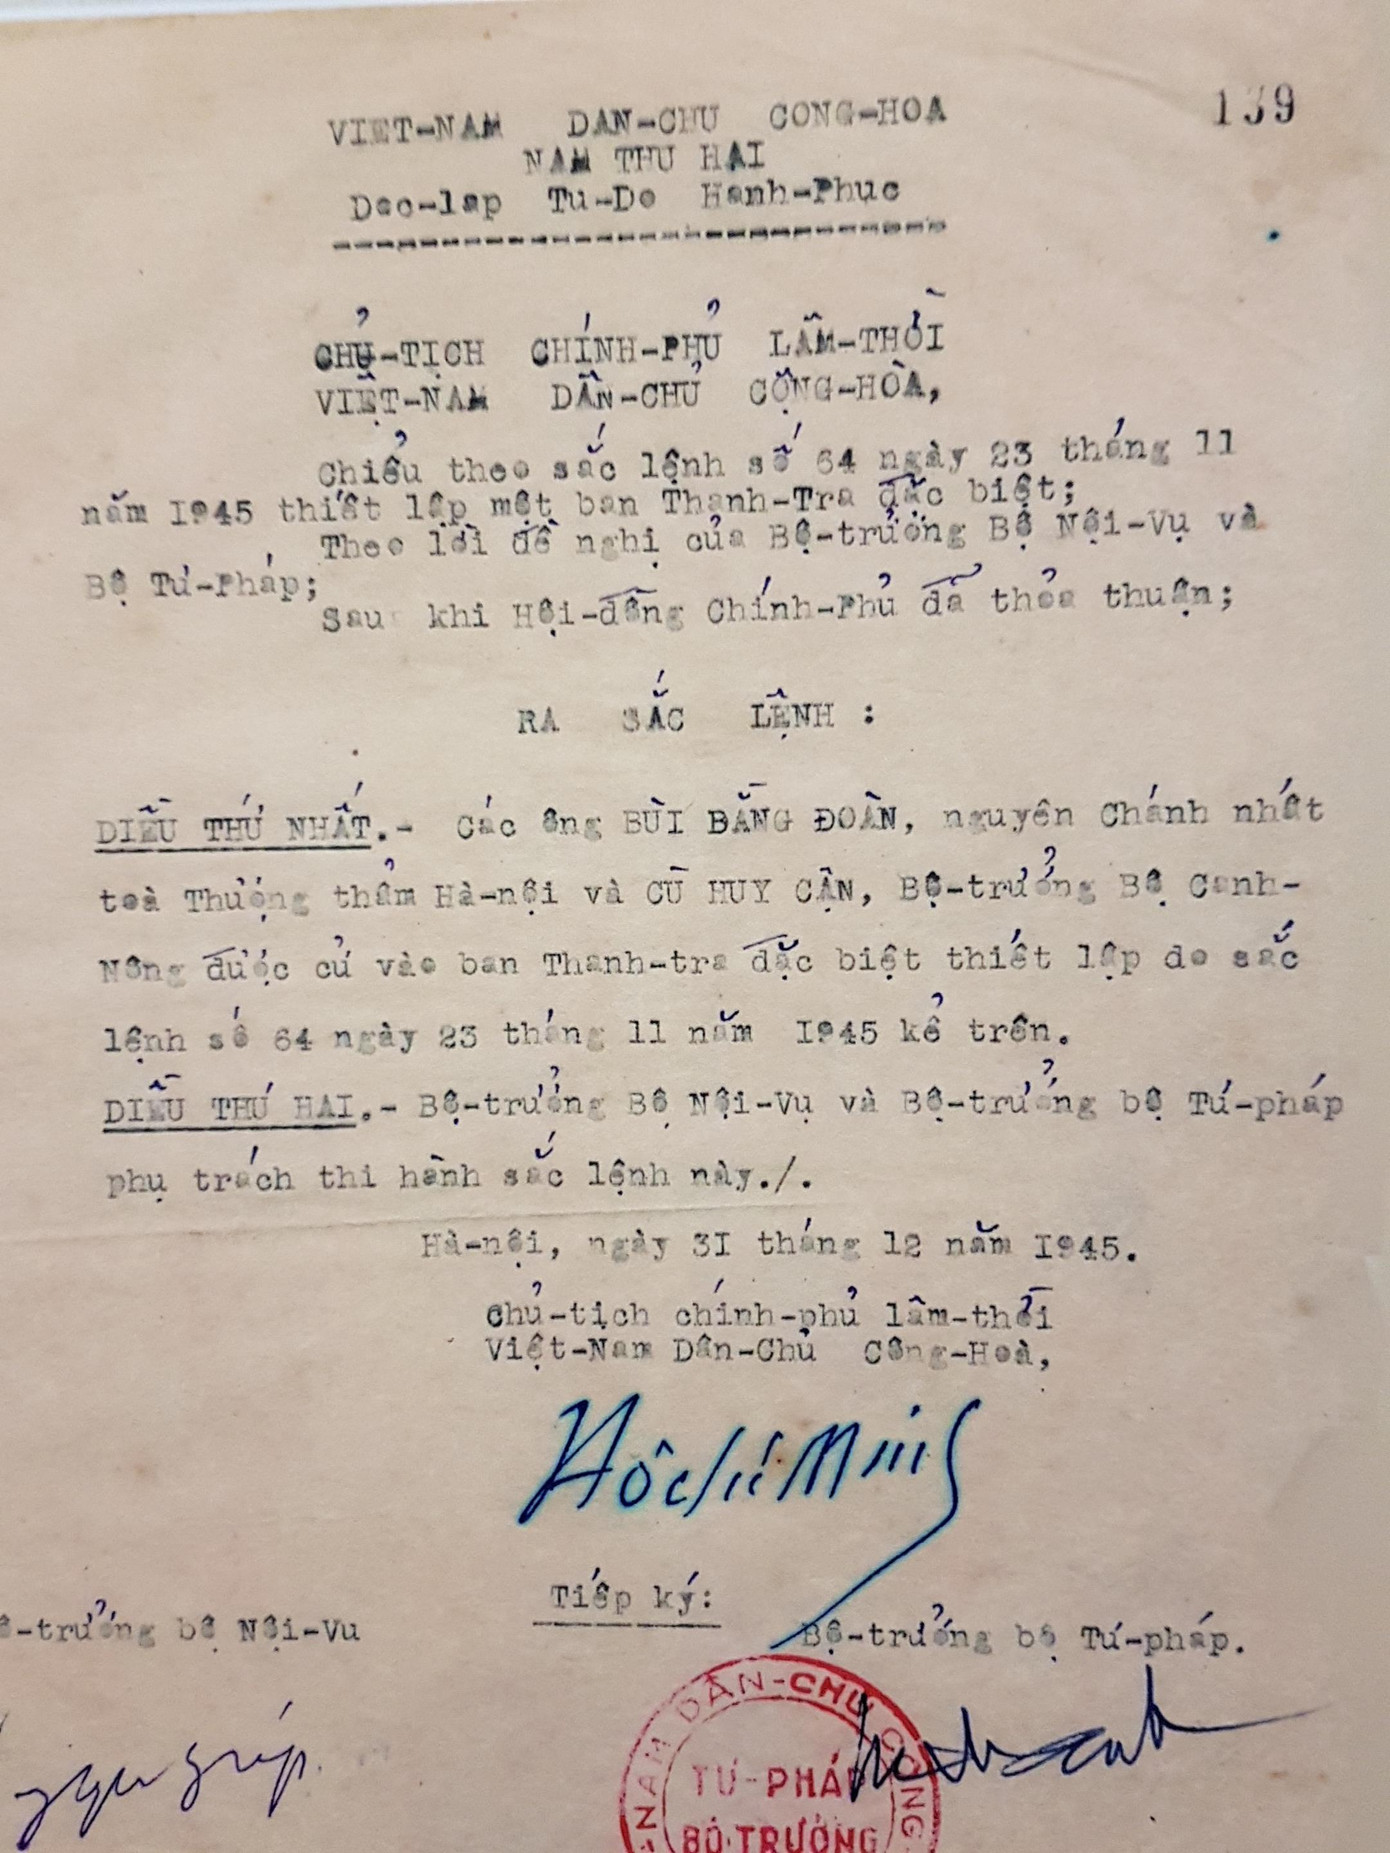 139
VIET-NAM DAN-CHU CONG-HOA
NAM THU HAI
Doc-lap Tu-Do Hanh-Phuc
CHỦ-TỊCH CHÍNH-PHỦ LÂM-THỜI
VIỆT-NAM DÂN-CHỦ CỘNG-HÒA,
Chiểu theo sắc lệnh số 64 ngày 23 tháng 11
năm 1945 thiết lập một ban Thanh-Tra đặc biệt;
Theo lời đề nghị của Bộ-trưởng Bộ Nội-Vụ và
Bộ Tư-Pháp;
Sau khi Hội-đồng Chính-Phủ đã thỏa thuận;
RA SẮC LỆNH :
DIỀU THỨ NHẤT.- Các ông BÙI BẰNG ĐOÀN, nguyên Chánh nhất
toà Thượng thẩm Hà-nội và CÙ HUY CẬN, Bộ-trưởng Bộ Canh-
Nông được cử vào ban Thanh-tra đặc biệt thiết lập do sắc
lệnh số 64 ngày 23 tháng 11 năm 1945 kể trên.
DIỀU THỨ HAI.- Bộ-trưởng Bộ Nội-Vụ và Bộ-trưởng bộ Tư-pháp
phụ trách thi hành sắc lệnh này./.
Hà-nội, ngày 31 tháng 12 năm 1945.
Chủ-tịch chính-phủ lâm-thời
Việt-Nam Dân-Chủ Cộng-Hoà,
Hồ Chí Minh
Tiếp ký:
ộ-trưởng bộ Nội-Vu
Bộ-trưởng bộ Tư-pháp.
-NAM DÂN-CHU CONG
TƯ-PHÁP
BỘ-TRƯỞNG